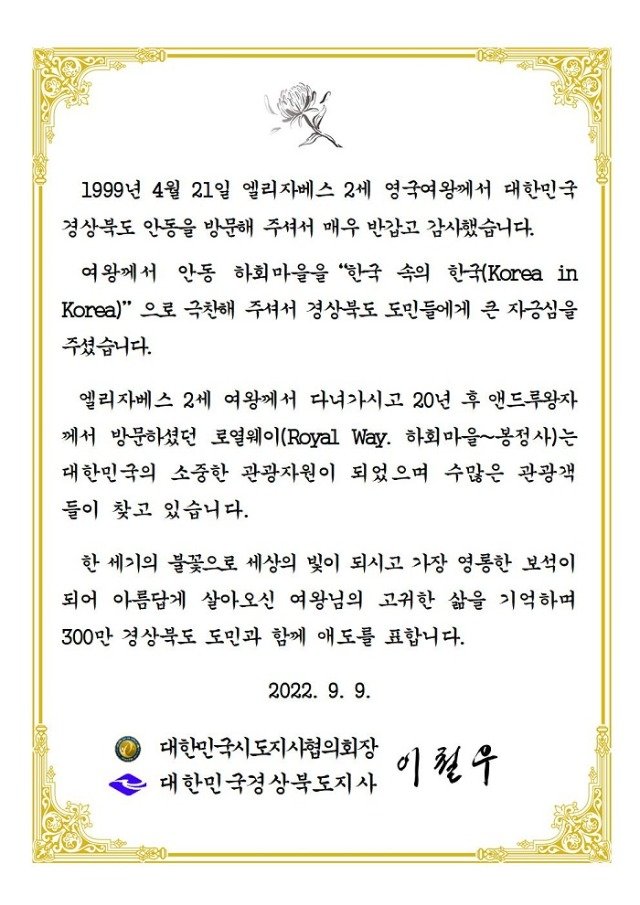 1999년 4월 21일 엘리자베스 2세 영국여왕께서 대한민국
경상북도 안동을 방문해 주셔서 매우 반갑고 감사했습니다.
여왕께서 안동 하회마을을 “한국 속의 한국(Korea in
Korea)” 으로 극찬해 주셔서 경상북도 도민들에게 큰 자긍심을
주셨습니다.
엘리자베스 2세 여왕께서 다녀가시고 20년 후 앤드루왕자
께서 방문하셨던 로열웨이(Royal Way. 하회마을~봉정사)는
대한민국의 소중한 관광자원이 되었으며 수많은 관광객
들이 찾고 있습니다.
한 세기의 불꽃으로 세상의 빛이 되시고 가장 영롱한 보석이
되어 아름답게 살아오신 여왕님의 고귀한 삶을 기억하며
300만 경상북도 도민과 함께 애도를 표합니다.
2022. 9. 9.
대한민국시도지사협의회장
대한민국경상북도지사 이철우